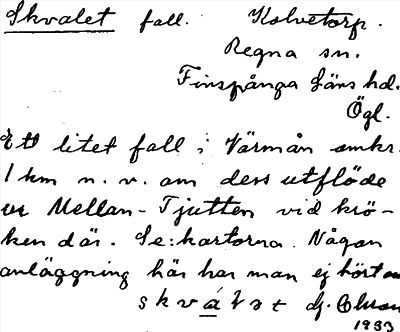 Skvalet fall. Kolvetorp.
Regna sn.
Finspånga läns hd.
Ögl.
Ett litet fall i Värmån omkr.
1 km n. v. om dess utflöde
ur Mellan-Tjutten vid krö-
ken där. Se: kartorna. Någon
anläggning här har man ej hört om
skválət dj. Olson
1933